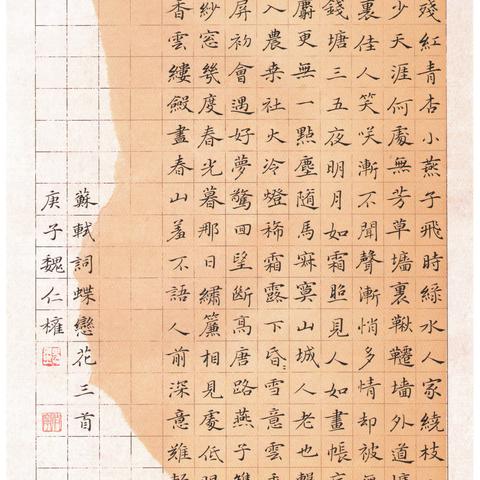 殘紅青杏小燕子飛時綠水人家繞枝
少天涯何處無芳草墻裏鞦韆墻外道墻
裏佳人笑咲漸不聞聲漸悄多情却被
錢塘三五夜明月如霜照見人如畫帳
麝更無一點塵隨馬寂寞山城人老也
入農桒社火冷燈稀霜露下昏〻雪意雲
屏初會遇好夢驚回望斷高唐路燕子
紗窓幾度春光暮那日繡簾相見處低
香雲縷斂盡春山羞不語人前深意難
蘇軾詞蝶戀花三首
庚子魏仁權